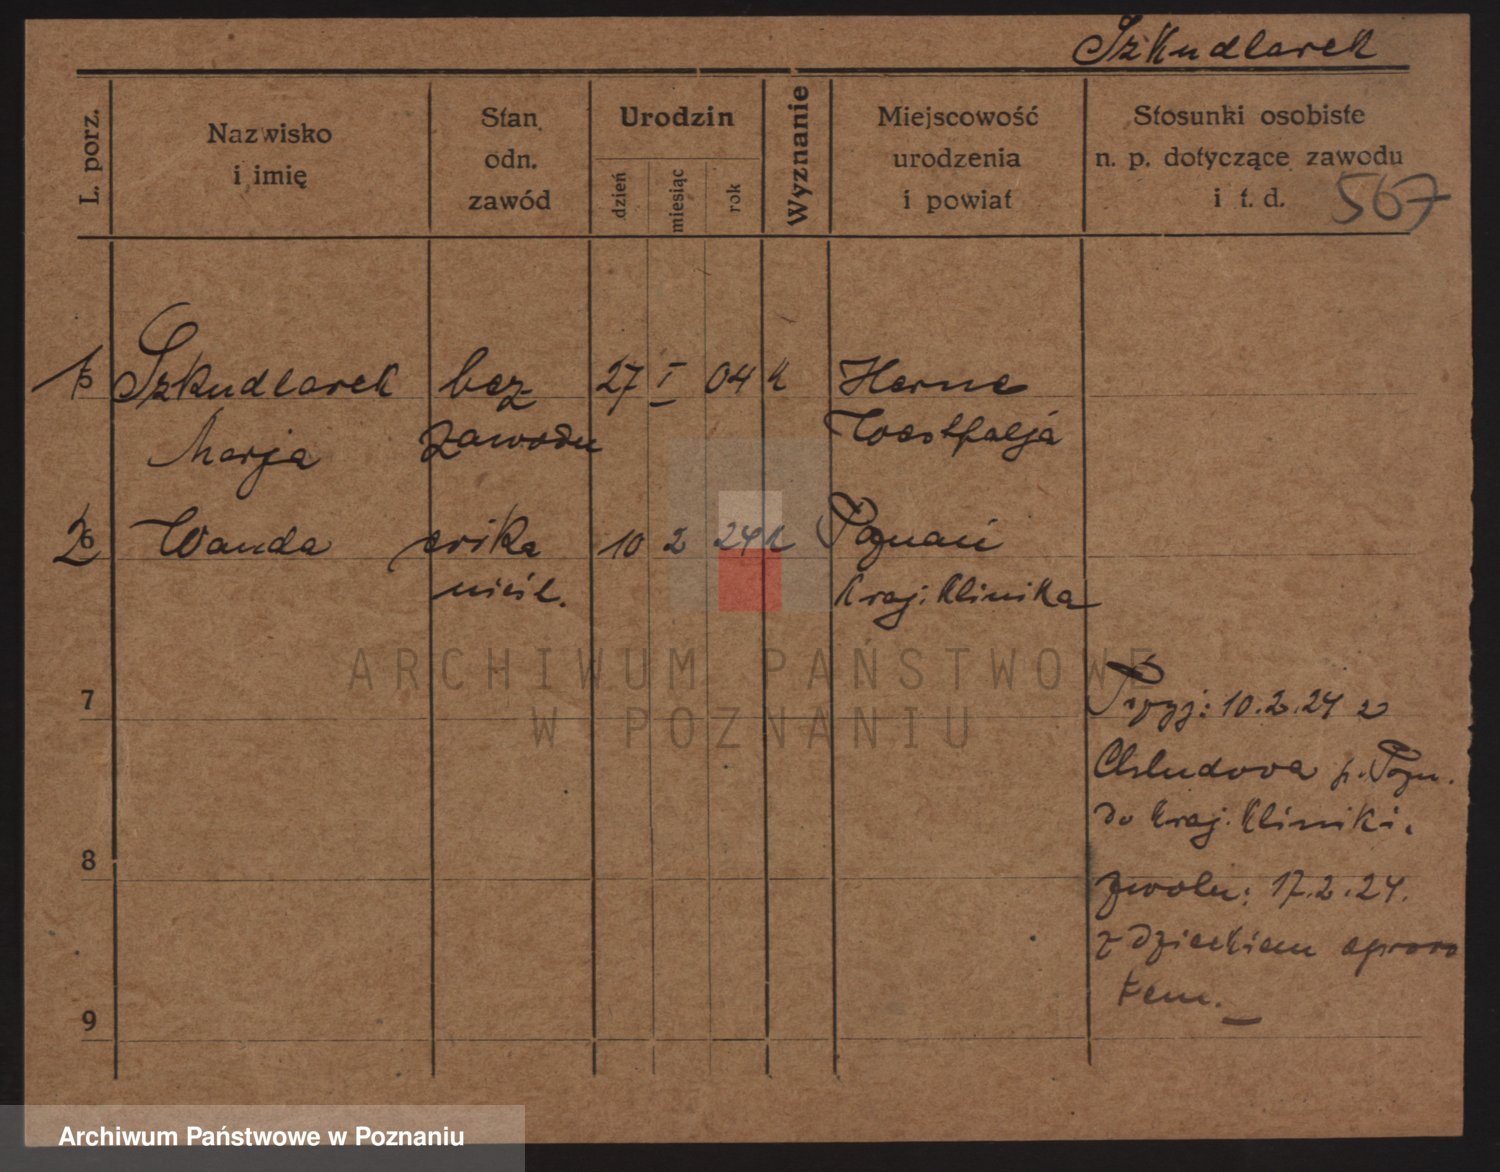 Szkudlarek
L. porz.
Nazwisko
i imię
Stan
odn.
zawód
Urodzin
dzień
miesiąc
rok
Wyznanie
Miejscowość
urodzenia
i powiat
Stosunki osobiste
n. p. dotyczące zawodu
i t. d.
567
1 5 Szkudlarek bez 27 I 04 k Herne
Marja zawodu Westfalja
2 6 Wanda córka 10 2 24 k Poznań
nieśl. Kraj. Klinika
ARCHIWUM PAŃSTWOWE
W POZNANIU
7
Przyj: 10.2.24 z
Chludowa p. Pozn.
do Kraj. Kliniki.
8
zwoln: 17.2.24.
z dzieckiem
9
Archiwum Państwowe w Poznaniu